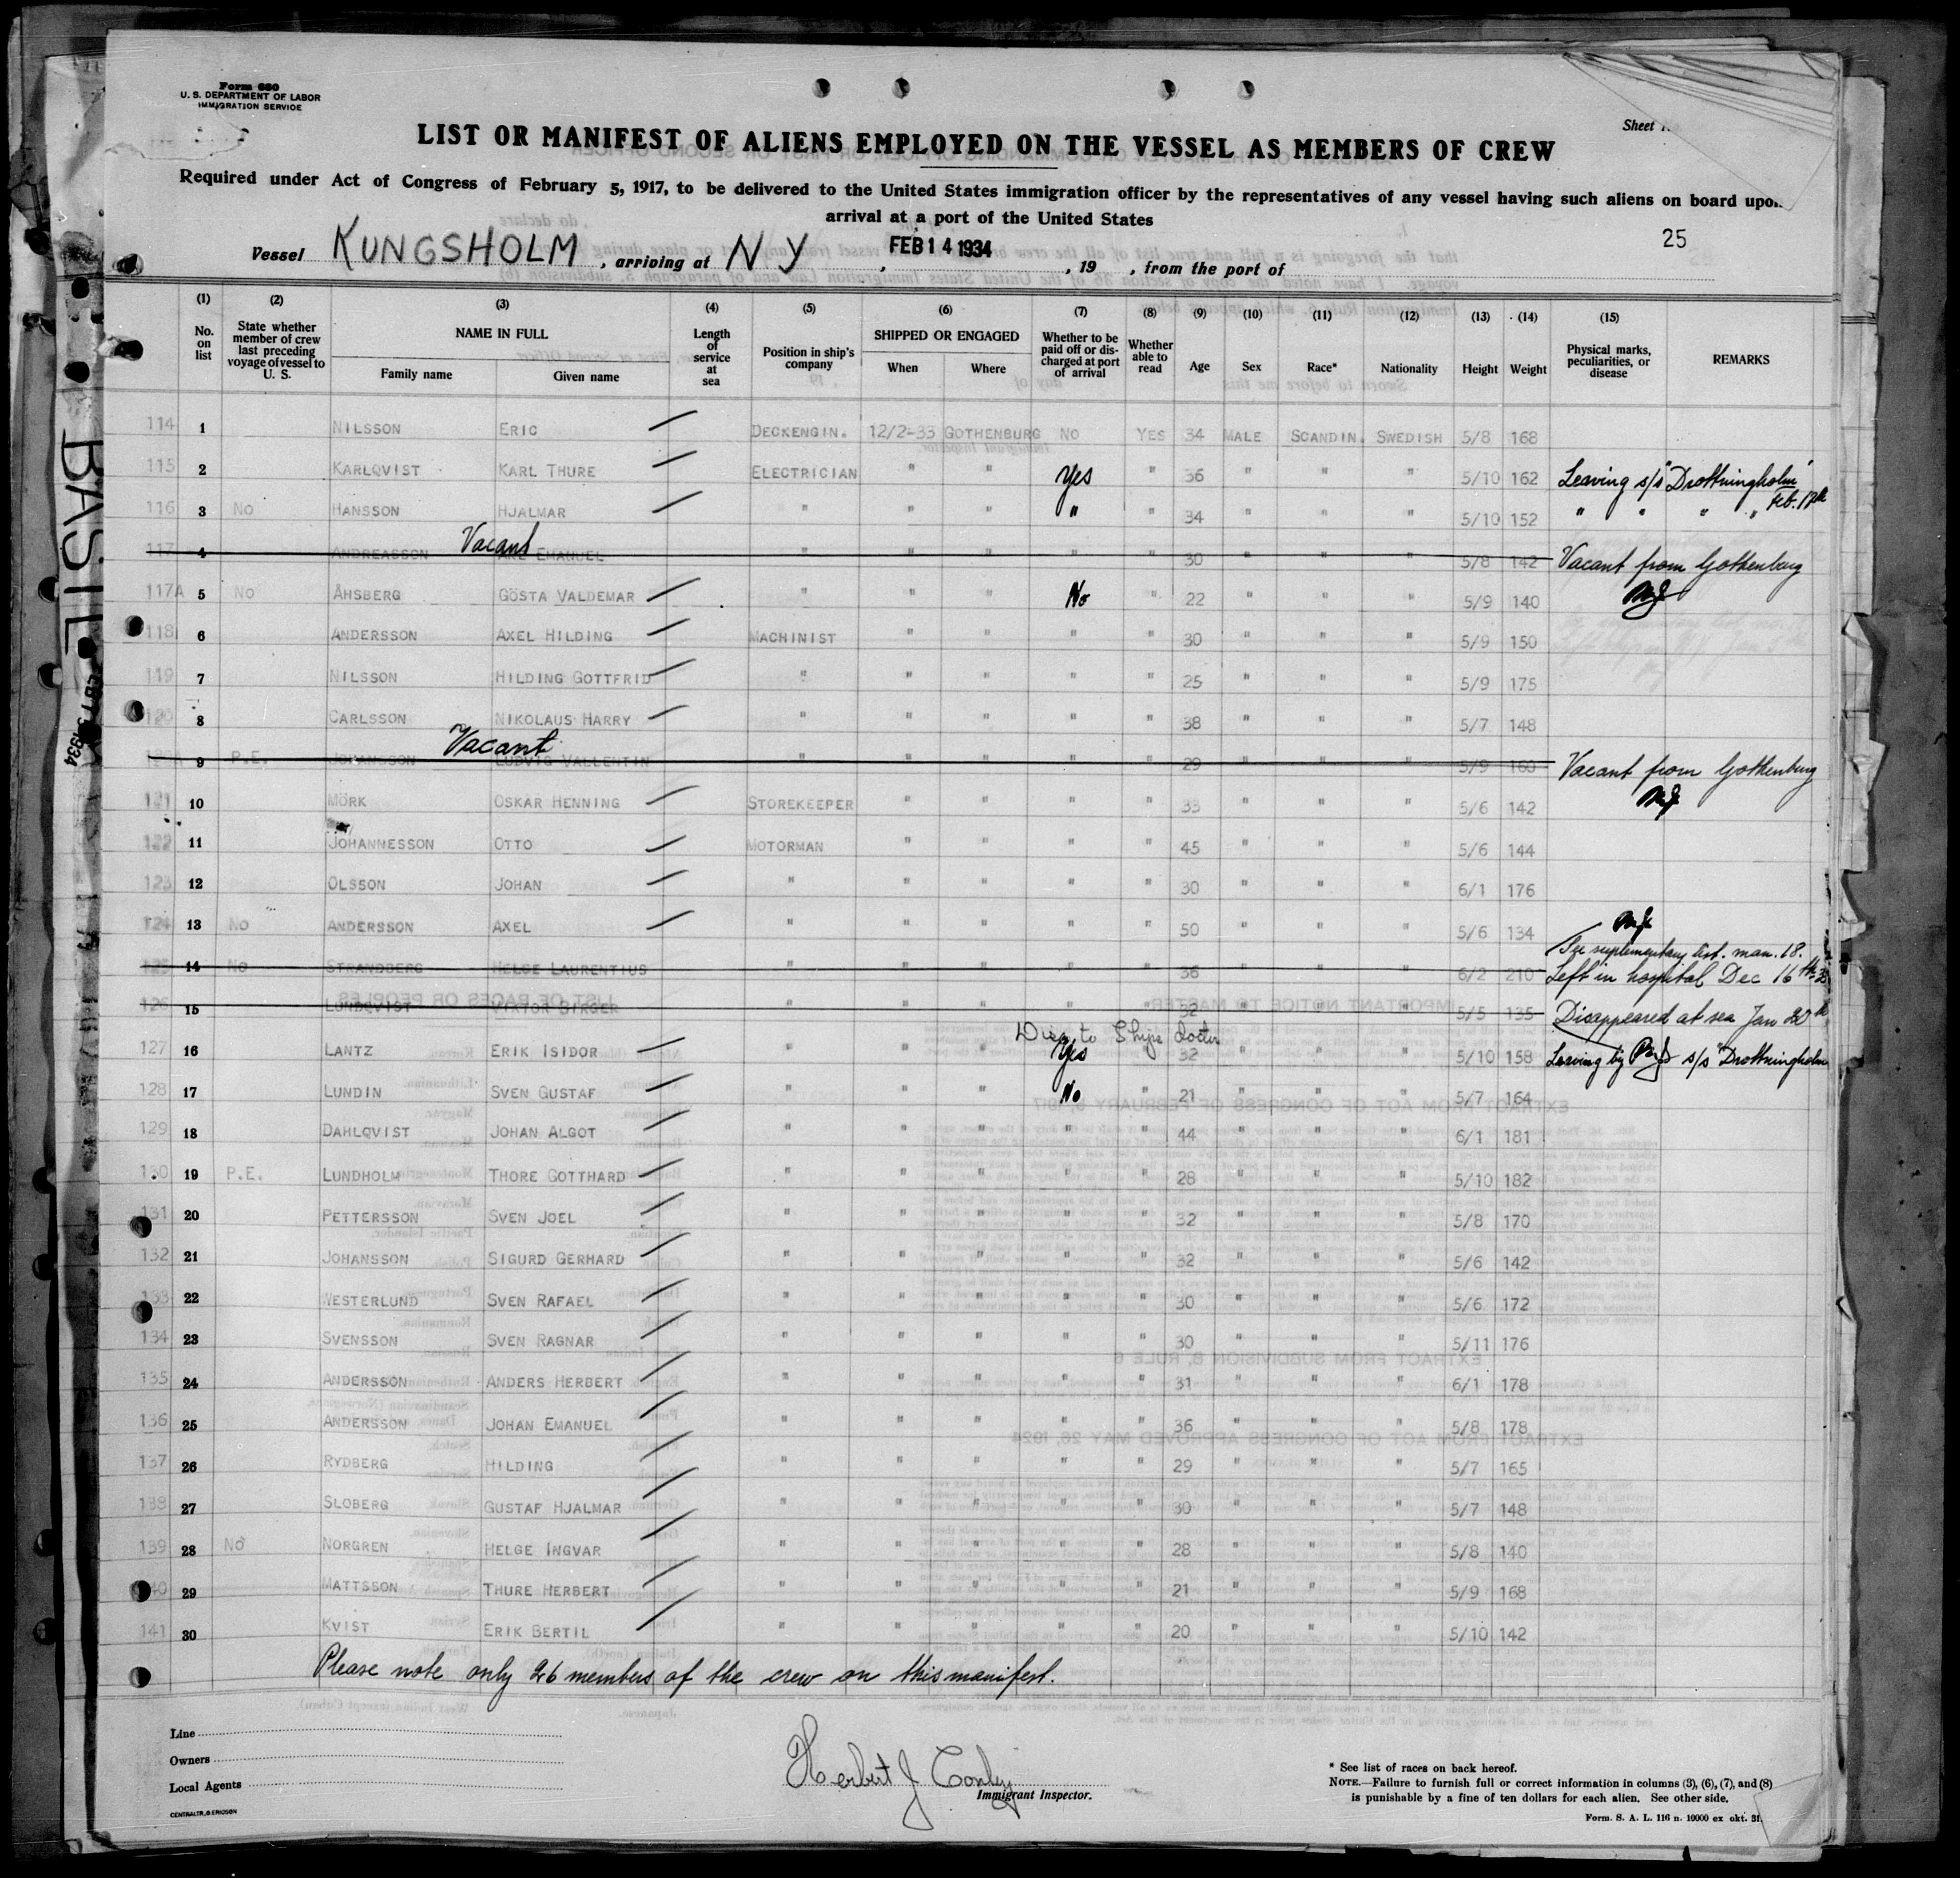 Form 680
U. S. DEPARTMENT OF LABOR
IMMIGRATION SERVICE
Sheet
LIST OR MANIFEST OF ALIENS EMPLOYED ON THE VESSEL AS MEMBERS OF CREW
Required under Act of Congress of February 5, 1917, to be delivered to the United States immigration officer by the representatives of any vessel having such aliens on board upon
arrival at a port of the United States
25
Vessel KUNGSHOLM, arriving at N Y, FEB 14 1934, 19 , from the port of
(1) (2) (3) (4) (5) (6) (7) (8) (9) (10) (11) (12) (13) (14) (15)
No. on list State whether member of crew last preceding voyage of vessel to U. S. NAME IN FULL Family name Given name Length of service at sea Position in ship's company SHIPPED OR ENGAGED When Where Whether to be paid off or discharged at port of arrival Whether able to read Age Sex Race* Nationality Height Weight Physical marks, peculiarities, or disease REMARKS
114 1 NILSSON ERIC DECKENGIN. 12/2-33 GOTHENBURG NO YES 34 MALE SCANDIN. SWEDISH 5/8 168
115 2 KARLQVIST KARL THURE ELECTRICIAN " " Yes " 36 " " " 5/10 162 Leaving s/s "Drottningholm"
116 3 NO HANSSON HJALMAR " " " " " 34 " " " 5/10 152 " " " " Feb. 17th
Vacant
117 4 ANDREASSON EMANUEL " " " " " 30 " " " 5/8 142 Vacant from Gothenburg
117A 5 NO ÅHSBERG GÖSTA VALDEMAR " " " No " 22 " " " 5/9 140
118 6 ANDERSSON AXEL HILDING MACHINIST " " " " 30 " " " 5/9 150
119 7 NILSSON HILDING GOTTFRID " " " " " 25 " " " 5/9 175
120 8 CARLSSON NIKOLAUS HARRY " " " " " 38 " " " 5/7 148
Vacant
120A 9 P.E. JOHANSSON LUDVIG VALLENTIN " " " " " 29 " " " 5/9 160 Vacant from Gothenburg
121 10 MÖRK OSKAR HENNING STOREKEEPER " " " " 33 " " " 5/6 142
122 11 JOHANNESSON OTTO MOTORMAN " " " " 45 " " " 5/6 144
123 12 OLSSON JOHAN " " " " " 30 " " " 6/1 176
124 13 NO ANDERSSON AXEL " " " " " 50 " " " 5/6 134
See suplementary list. man. 18.
125 14 NO STRANDBERG HELGE LAURENTIUS " " " " " 36 " " " 6/2 210 Left in hospital Dec 16th
126 15 LUNDQVIST VIKTOR BIRGER " " " " " 32 " " " 5/5 135 Disappeared at sea Jan
Disc to Ships doctor
127 16 LANTZ ERIK ISIDOR " " " Yes 32 " " " 5/10 158 Leaving by s/s "Drottningholm
128 17 LUNDIN SVEN GUSTAF " " " No " 21 " " " 5/7 164
129 18 DAHLQVIST JOHAN ALGOT " " " " " 44 " " " 6/1 181
130 19 P.E. LUNDHOLM THORE GOTTHARD " " " " " 28 " " " 5/10 182
131 20 PETTERSSON SVEN JOEL " " " " " 32 " " " 5/8 170
132 21 JOHANSSON SIGURD GERHARD " " " " " 32 " " " 5/6 142
133 22 WESTERLUND SVEN RAFAEL " " " " " 30 " " " 5/6 172
134 23 SVENSSON SVEN RAGNAR " " " " " 30 " " " 5/11 176
135 24 ANDERSSON ANDERS HERBERT " " " " " 31 " " " 6/1 178
136 25 ANDERSSON JOHAN EMANUEL " " " " " 36 " " " 5/8 178
137 26 RYDBERG HILDING " " " " " 29 " " " 5/7 165
138 27 SLOBERG GUSTAF HJALMAR " " " " " 30 " " " 5/7 148
139 28 NO NORGREN HELGE INGVAR " " " " " 28 " " " 5/8 140
140 29 MATTSSON THURE HERBERT " " " " " 21 " " " 5/9 168
141 30 KVIST ERIK BERTIL " " " " " 20 " " " 5/10 142
Please note only 26 members of the crew on this manifest.
Line
Owners
Local Agents
CENTRALTR. G. ERICSON
Herbert J Conley
Immigrant Inspector.
* See list of races on back hereof.
NOTE.—Failure to furnish full or correct information in columns (3), (6), (7), and (8)
is punishable by a fine of ten dollars for each alien. See other side.
Form. S. A. L. 116 n. 10000 ex okt. 31.
BASIL
1934